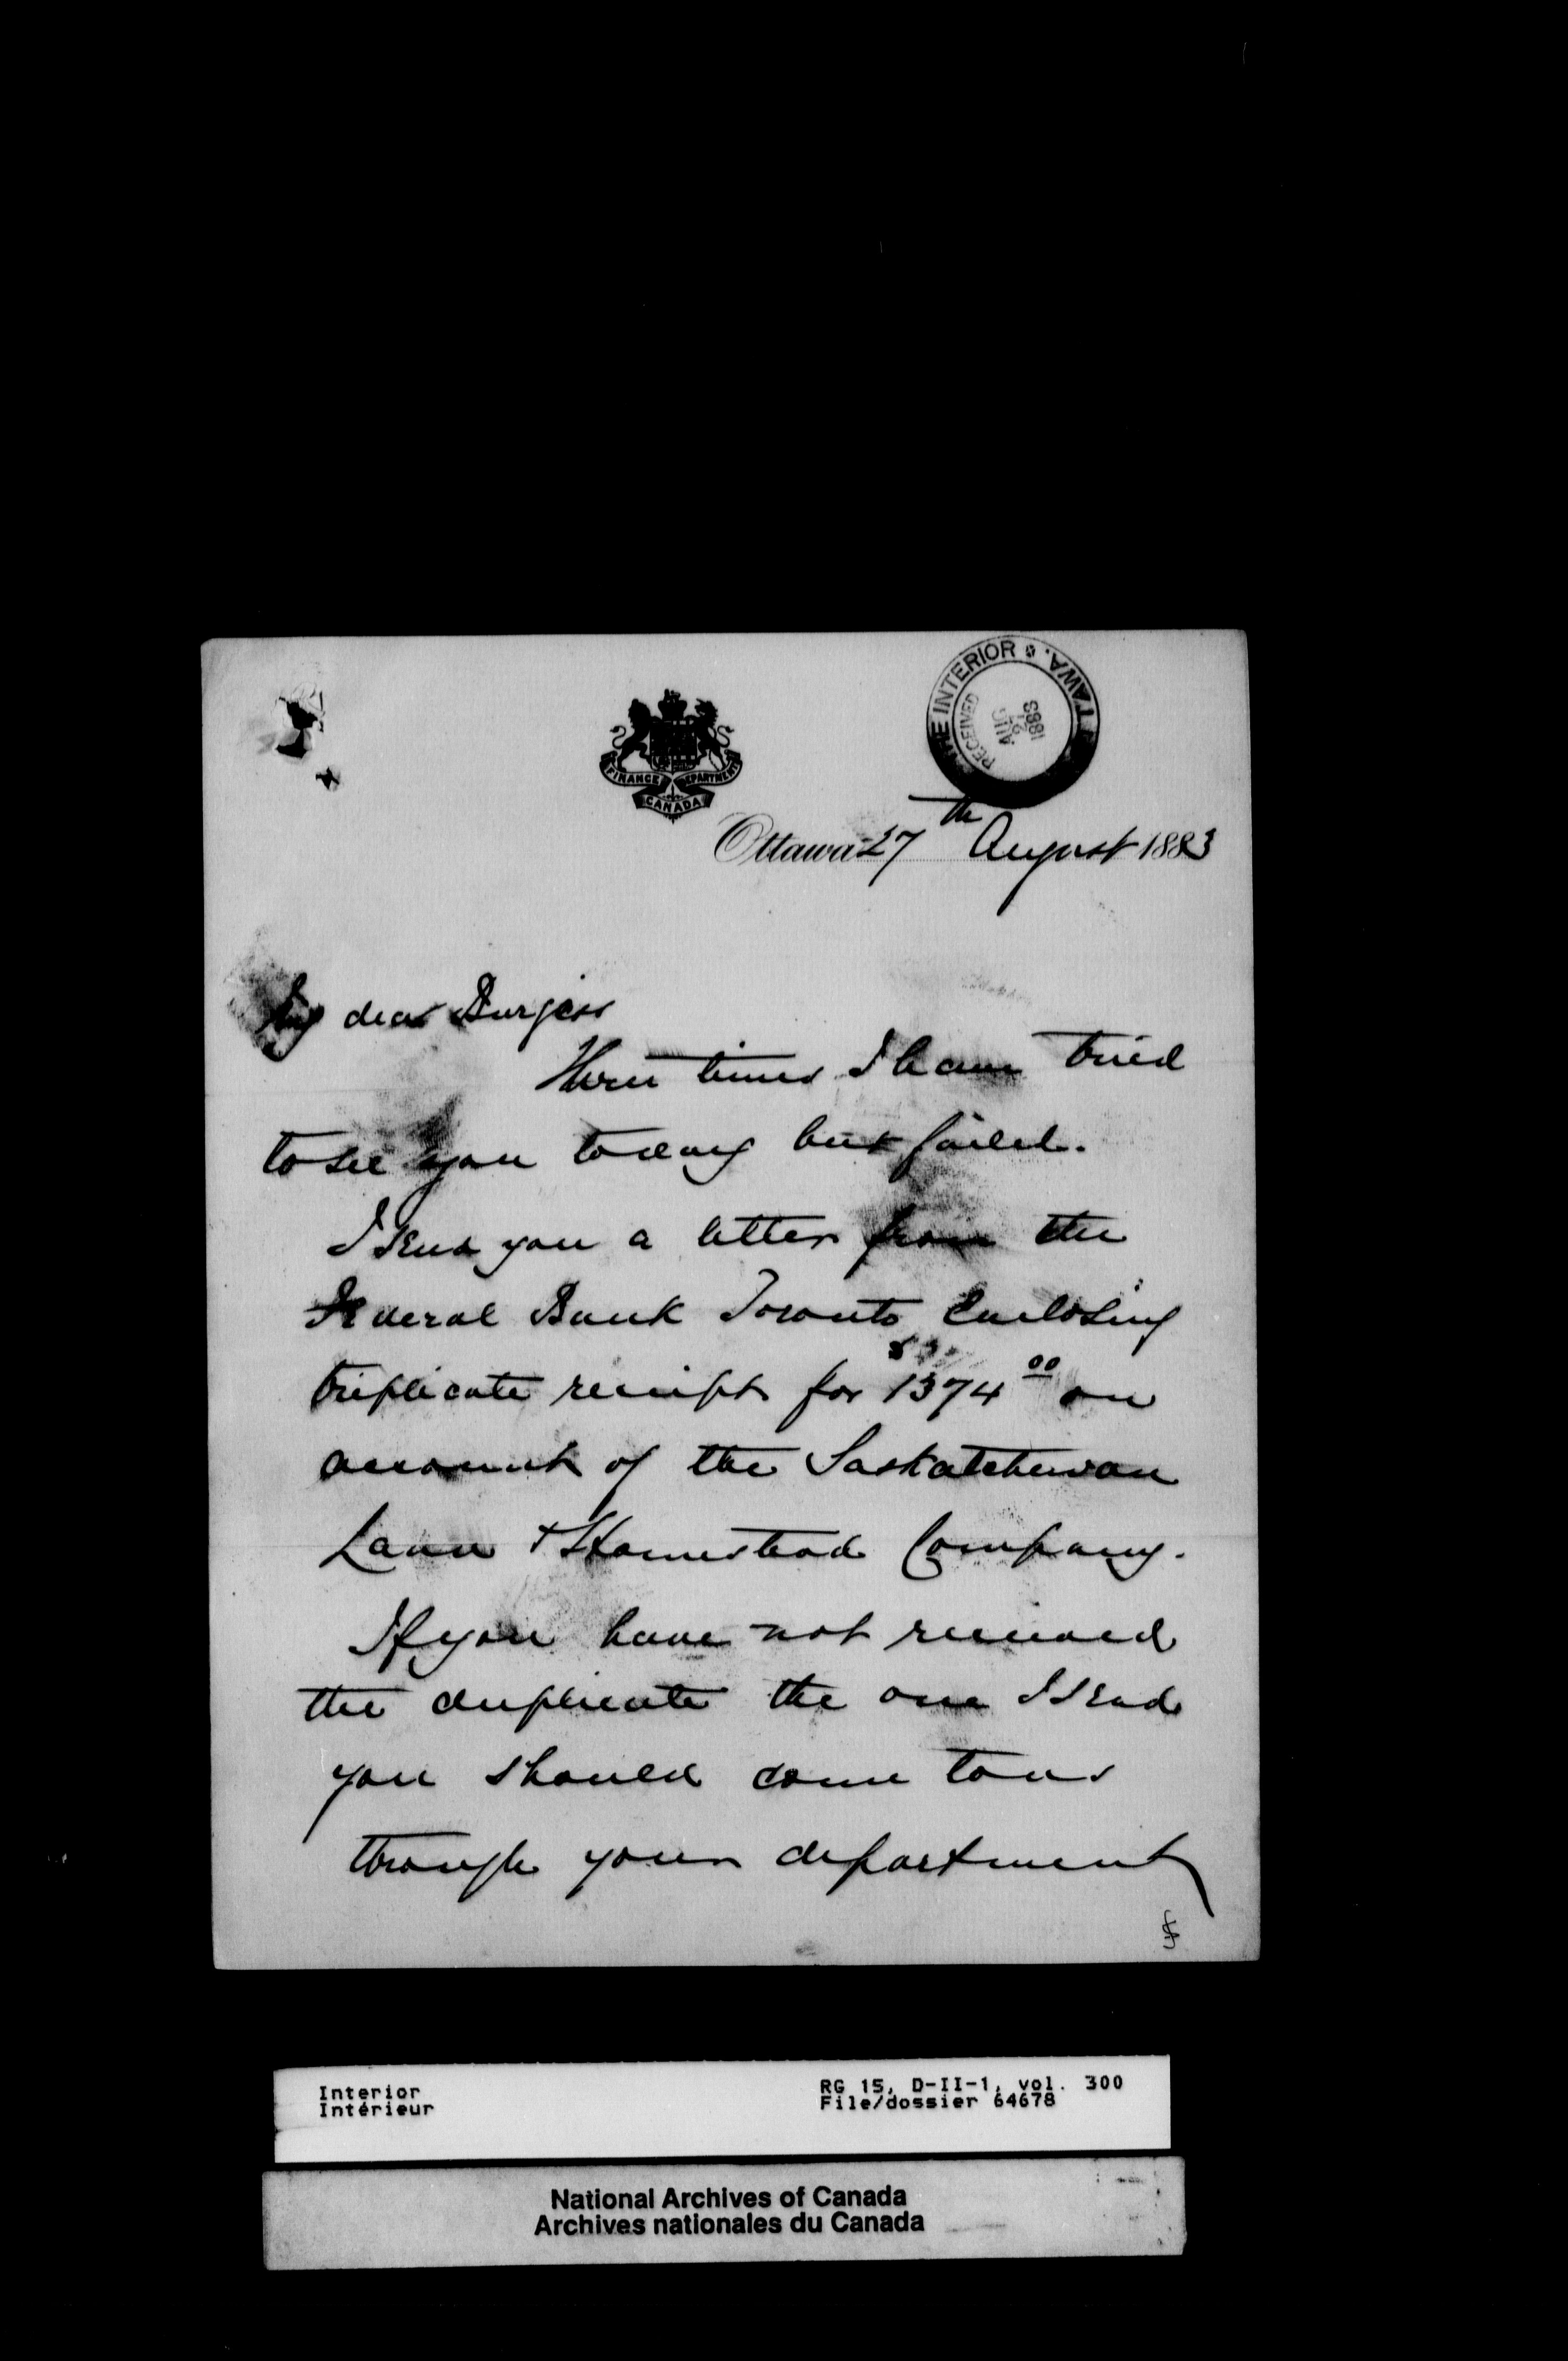 THE INTERIOR
TAWA.
RECEIVED
AUG
1883
FINANCE DEPARTMENT
CANADA
Ottawa 27th August 1883
My dear Burgess
Three times I have tried
to see you today but failed.
I send you a letter from the
Federal Bank Toronto Enclosing
triplicate receipt for 1374 00 on
account of the Saskatchewan
Land + Homestead Company.
If you have not received
the duplicate the one I send
you should come to us
through your department
Interior
Intérieur
RG 15, D-II-1, vol. 300
File/dossier 64678
National Archives of Canada
Archives nationales du Canada